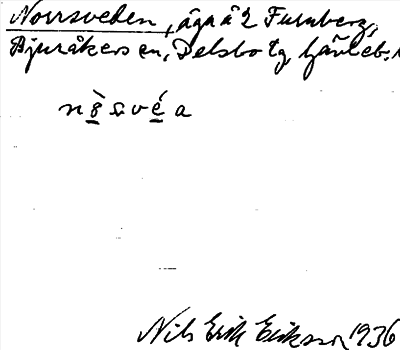 Norrsveden, äga å 2 Furuberg,
Bjuråkers sn, Delsbo tg, Gävleb. l
n ò s v é a
Nils Erik Eriksson 1936